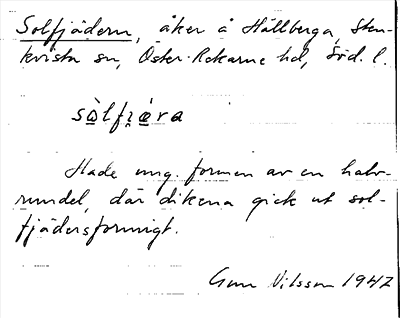 Solfjädern, åker å Hällberga, Sten-
kvista sn, Öster-Rekarne hd, Söd. l.
sòlfi̯æra
Hade ung. formen av en halv-
rundel, där dikena gick ut sol-
fjädersformigt.
Gun Nilsson 1947